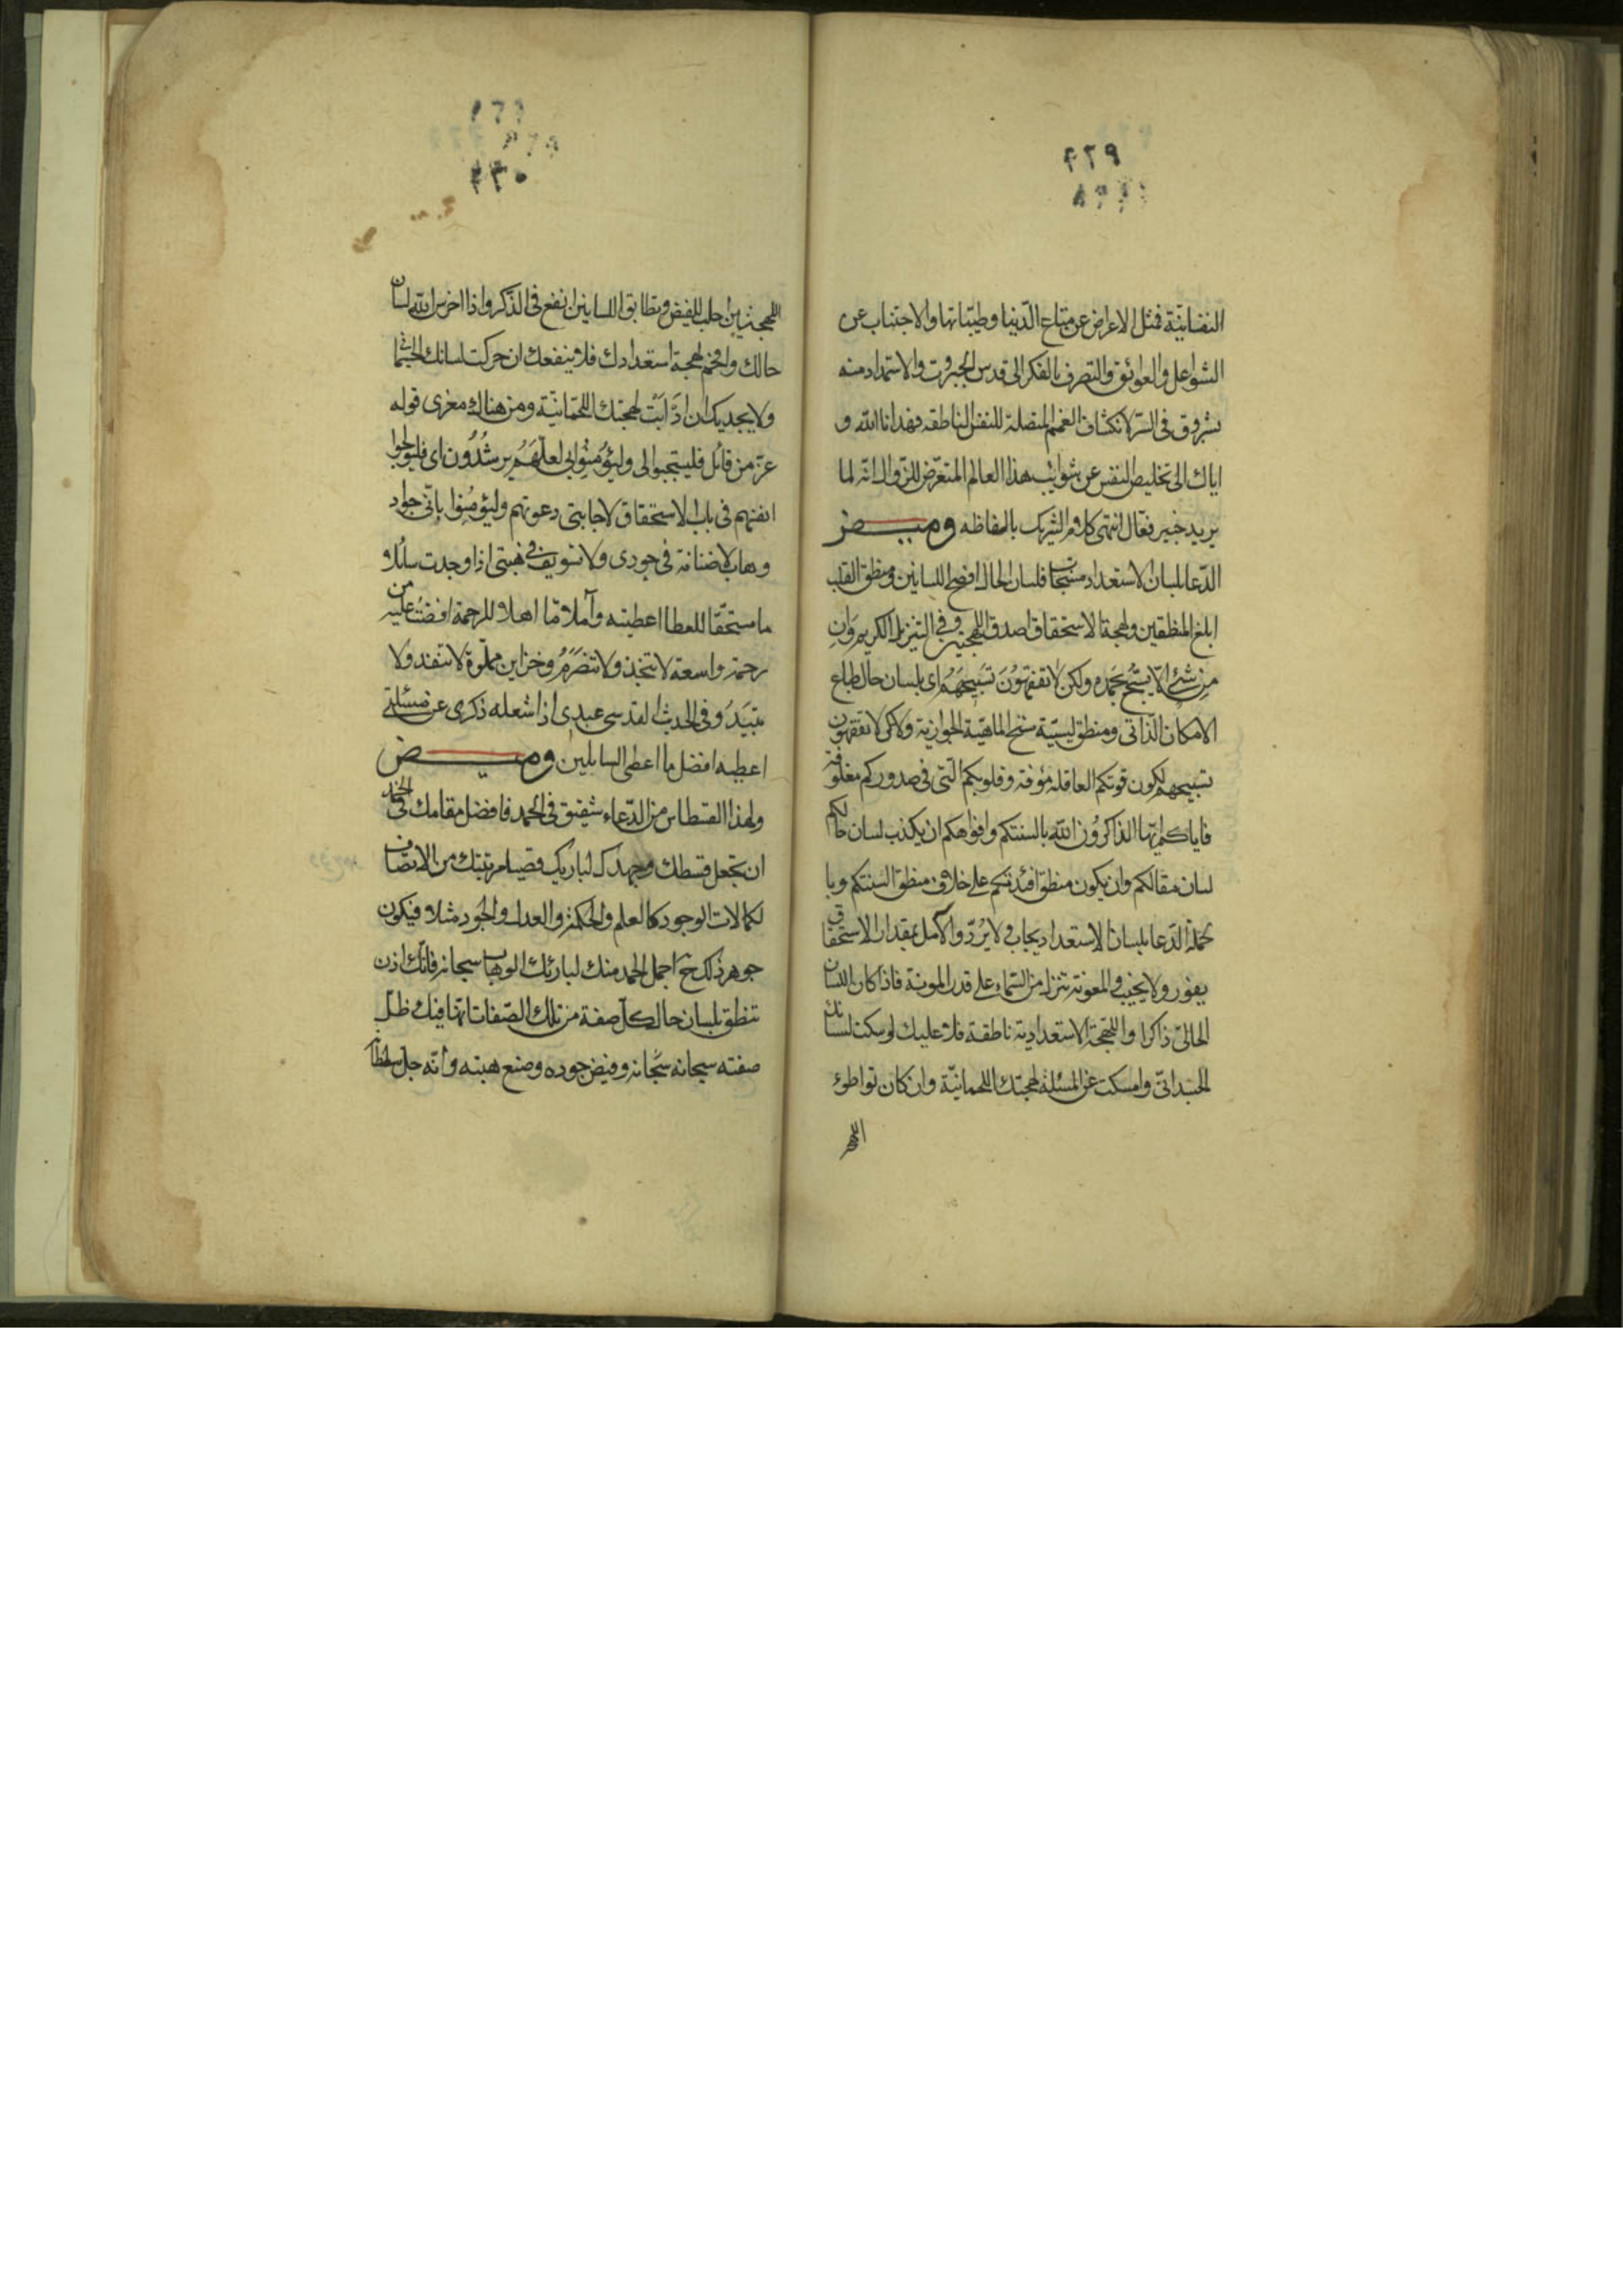 ٢٢٩
النفسانيّة فمثل الاعراض عن متاع الدّنيا وطيّباتها والاجتناب عن
الشواغل والعوائق والتصرف بالفكر الى قدس الجبروت والاستمداد منه
بشروق فى السرّ لانكشاف الغمم المتصلة للنفس الناطقه فهدانا الله و
اياك الى تخليص النفس عن شوايب هذا العالم المتعرّض للزّوال انّه لما
يريد خبير فعّال انتهى كلام الشريك بالفاظه وميــض
الدّعا بلسان الاستعداد مستجاب فلسان الحال افصح اللسانين ومنطق القلب
ابلغ المنطقين ولهجة الاستحقاق اصدق اللهجتين وفى التنزيل الكريم وَاِن
مِن شَئ اِلّا يُسَبِّحُ بِحَمْدِه ولكن لا تفقهوُنَ تَسبيحَهُم اى بلسان حال طباع
الامكان الذّاتى ومنطق ليسيّة سنخ الماهيّة الجوازية ولكن لا تفقهون
تسبيحهم لكون قوتكم العاقلة مؤفة وقلوبكم الّتى فى صدوركم مغلوفة
فاياكم ايّها الذاكروُن الله بالسنتكم وافواهكم ان يكذب لسان حالكم
لسان مقالكم وان يكون منطق افئدتكم على خلاف منطق السنتكم وبا
لجملة الدّعا بلسان الاستعداد يجاب ولا يُرَدّ والآمل بمقدار الاستحقاق
يفوز ولا يخيب والمعونة تنزل من السّماء على قدر المونة فاذا كان اللسان
الحالىّ ذاكرا واللهجة الاستعدادية ناطقة فلا عليك لو سكت لسانك
الجسدانىّ وامسكت عن المسئلة لهجتك اللحمانيّة وان كان تواطؤ
اللهجـ
٢٣٠
اللهجتين اجلب للفيض وتطابق اللسانين انفع فى الذّكر واذا اخرس الله لسان
حالك وافحم لهجة استعدادك فلا ينفعك ان حركت لسانك الجسمانى
ولا يجديك ان اذَابَتْ لهجتك اللحمانيّة ومن هنالك مغزى قوله
عزّ من قائل فليستجيبوا لى وليُؤمِنُوا بى لعلّهُم يرشُدُون اى فليولجوا
انفسهم فى باب الاستحقاق لاجابتى دعوتهم وليُؤمِنُوا باِنّى جواد
وهاب لا ضنانة فى جودى ولا تسويف فى هبتى اذا وجدت سائلا
ما مستحقّا للعطا اعطيته وآملا مّا اهلا للرحمة افضتُ عليه من
رحمة واسعة لا تنخذ ولا تتصَرَّمُ وخزاين مملوّة لا تنفد ولا
تبيدُ وفى الحديث القدسى عبدى اذا شغله ذكرى عن مسئلتى
اعطيه افضل ما اعطى السايلين وميــض
ولهذا القسطاس من الدّعاء شقيق فى الحمد فافضل مقامك فى الحمد
ان تجعل قسطك من حمدك لباريك قصيا مرتبتك من الاتصاف
لكمالات الوجود كالعلم والحكمة والعدل والجود مثلا فيكون
جوهر ذاتك ح اجمل الحمد منك لبارئك الوهاب سبحانه فانّك اذن
تنطق بلسان حال كلّ صفة من تلك الصّفات انّها فيك ظلّ
صفته سبحانه سبحانه وفيض جوده وصنع هبته وانّه جل سلطانه